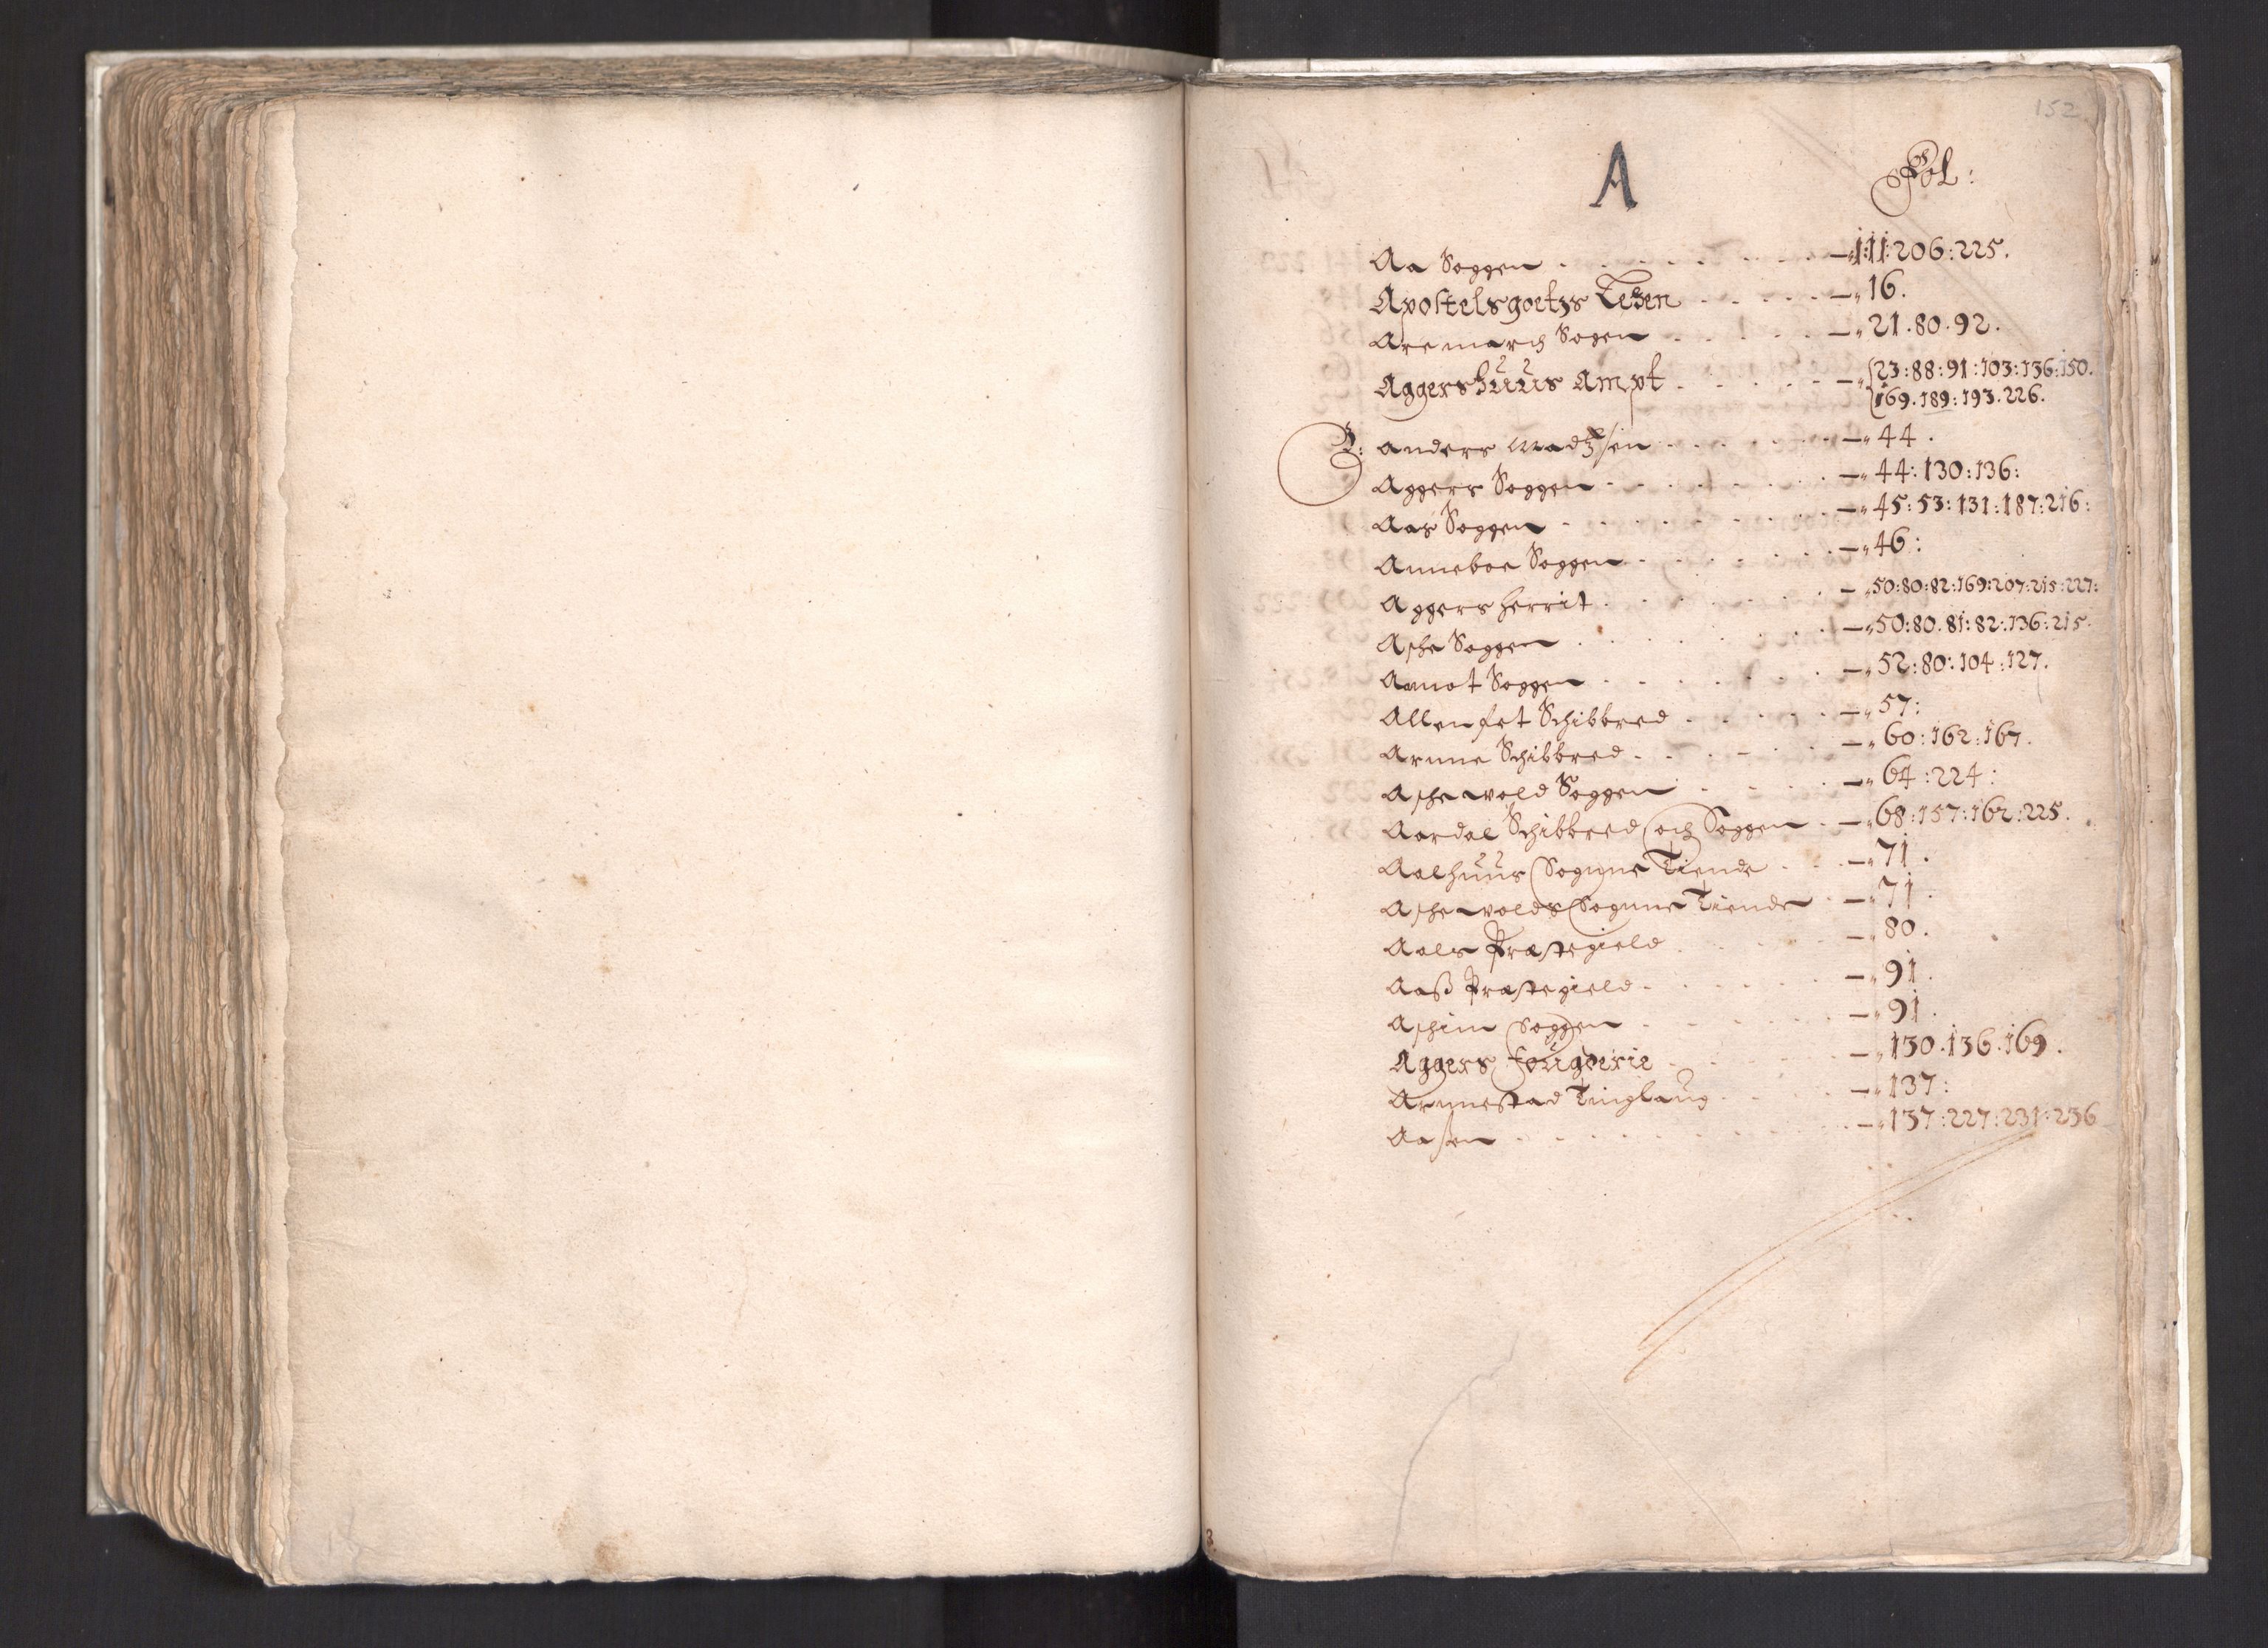 152
A
Fol:
Aa Soggen - 1:11:206:225.
Apostelsgoetzs Lehen - 16.
Aremarch Sogen - 21.80.92.
Aggershuus Ampt - 23:88:91:103:136:150.
169.189:193.226.
H: Anders Madtzsen - 44.
Aggers Soggen - 44:130:136:
Aas Soggen - 45:53:131:187:216:
Anneboe Soggen - 46:
Aggers herrit - 50:80:82:169:207:215:227:
Aske Soggen - 50:80.81:82:136:215.
Aamot Soggen - 52:80:104:127.
Allenfet Schibbred - 57:
Arnne Schibbred - 60:162:167.
Askevold Soggen - 64:224:
Aardal Schibbred och Soggen - 68:157:162:225.
Aalhuus Sognne Tiende - 71.
Askevolds Sognne Tiende - 71.
Aals Præstegield - 80.
Aaß Præstegield - 91.
Askim Soggen - 91.
Aggers fougderie - 130.136.169.
Arnnestad Tinglaug - 137:
Aasen - 137:227:231:236